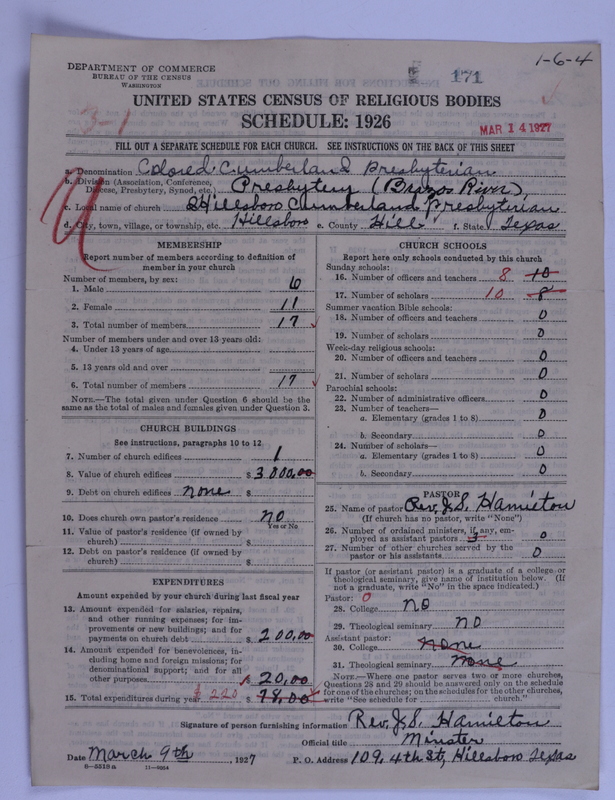 1-6-4
DEPARTMENT OF COMMERCE
BUREAU OF THE CENSUS
WASHINGTON
171
UNITED STATES CENSUS OF RELIGIOUS BODIES
SCHEDULE: 1926
3-1
MAR 14 1927
FILL OUT A SEPARATE SCHEDULE FOR EACH CHURCH. SEE INSTRUCTIONS ON THE BACK OF THIS SHEET
a. Denomination Colored Cumberland Presbyterian
b. Division (Association, Conference,
Diocese, Presbytery, Synod, etc.) Presbytery (Brazos River)
c. Local name of church Hillsboro Cumberland Presbyterian
d. City, town, village, or township, etc. Hillsboro e. County Hill f. State Texas
MEMBERSHIP
Report number of members according to definition of
member in your church
Number of members, by sex:
1. Male 6
2. Female 11
3. Total number of members 17
Number of members under and over 13 years old:
4. Under 13 years of age
5. 13 years old and over
6. Total number of members 17
NOTE.—The total given under Question 6 should be the
same as the total of males and females given under Question 3.
CHURCH BUILDINGS
See instructions, paragraphs 10 to 12
7. Number of church edifices 1
8. Value of church edifices $ 3000,00
9. Debt on church edifices none $
10. Does church own pastor's residence no
Yes or No
11. Value of pastor's residence (if owned by
church) $
12. Debt on pastor's residence (if owned by
church) $
EXPENDITURES
Amount expended by your church during last fiscal year
13. Amount expended for salaries, repairs,
and other running expenses; for im-
provements or new buildings; and for
payments on church debt $ 200,00
14. Amount expended for benevolences, in-
cluding home and foreign missions; for
denominational support; and for all
other purposes $ 20,00
15. Total expenditures during year $ 220 $ 78,00
CHURCH SCHOOLS
Report here only schools conducted by this church
Sunday schools:
16. Number of officers and teachers 8 10
17. Number of scholars 10 8
Summer vacation Bible schools:
18. Number of officers and teachers 0
19. Number of scholars 0
Week-day religious schools:
20. Number of officers and teachers 0
21. Number of scholars 0
Parochial schools:
22. Number of administrative officers 0
23. Number of teachers—
a. Elementary (grades 1 to 8) 0
b. Secondary 0
24. Number of scholars—
a. Elementary (grades 1 to 8) 0
b. Secondary 0
PASTOR
25. Name of pastor Rev. J.S. Hamilton
(If church has no pastor, write "None")
26. Number of ordained ministers, if any, em-
ployed as assistant pastors 0
27. Number of other churches served by the
pastor or his assistants 0
If pastor (or assistant pastor) is a graduate of a college or
theological seminary, give name of institution below. (If
not a graduate, write "No" in the space indicated.)
Pastor: 0
28. College no
29. Theological seminary no
Assistant pastor:
30. College none
31. Theological seminary none
NOTE.—Where one pastor serves two or more churches,
Questions 28 and 29 should be answered only on the schedule
for one of the churches; on the schedules for the other churches,
write "See schedule for church."
Signature of person furnishing information Rev. J.S. Hamilton
Official title Minster
Date March 9th, 1927 P. O. Address 109, 4th St, Hillsboro Texas
8-5518a 11-9264